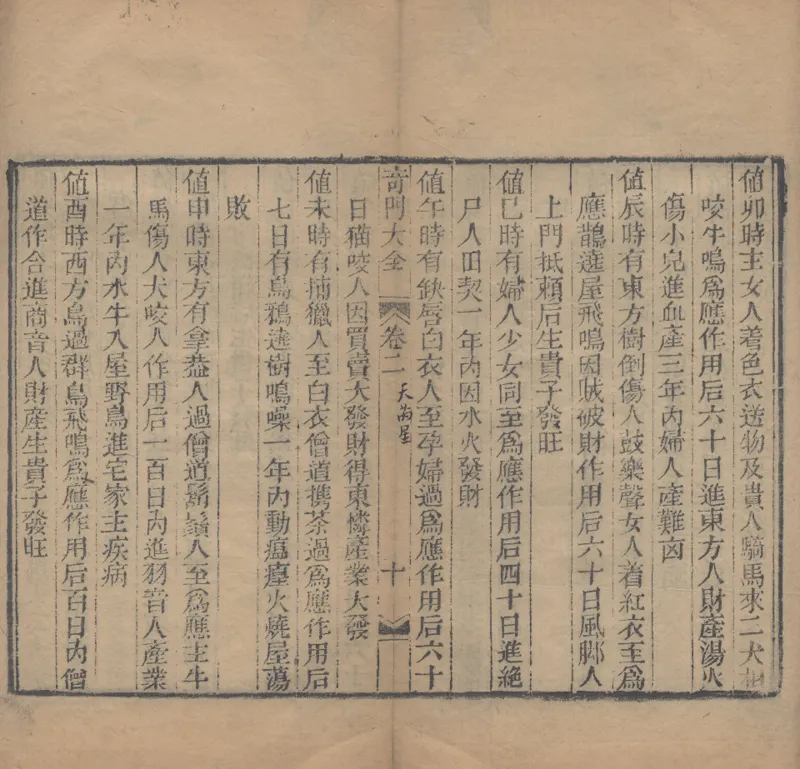 值卯時主女人着色衣送物及貴人騎馬來二犬相
咬牛鳴爲應作用后六十日進東方人財產湯火
傷小兒進血產三年內婦人產難凶
值辰時有東方樹倒傷人鼓樂聲女人着紅衣至爲
應鵲遶屋飛鳴因賊破財作用后六十日風脚人
上門抵賴后生貴子發旺
值巳時有婦人少女同至爲應作用后四十日進絶
尸人田契一年內因水火發財
值午時有缺唇白衣人至孕婦過爲應作用后六十
奇門大全 卷二 天芮星 十
日猫咬人因買賣大發財得東憐產業大發
值未時有捕獵人至白衣僧道携茶過爲應作用后
七日有鳥鵶遶樹鳴噪一年內動瘟瘴火燒屋蕩
敗
值申時東方有拿盔人過僧道鬍鬚人至爲應主牛
馬傷人犬咬人作用后一百日內進羽音人產業
一年內水牛入屋野鳥進宅家主疾病
值酉時西方鳥過群鳥飛鳴爲應作用后百日內僧
道作合進商音人財產生貴子發旺